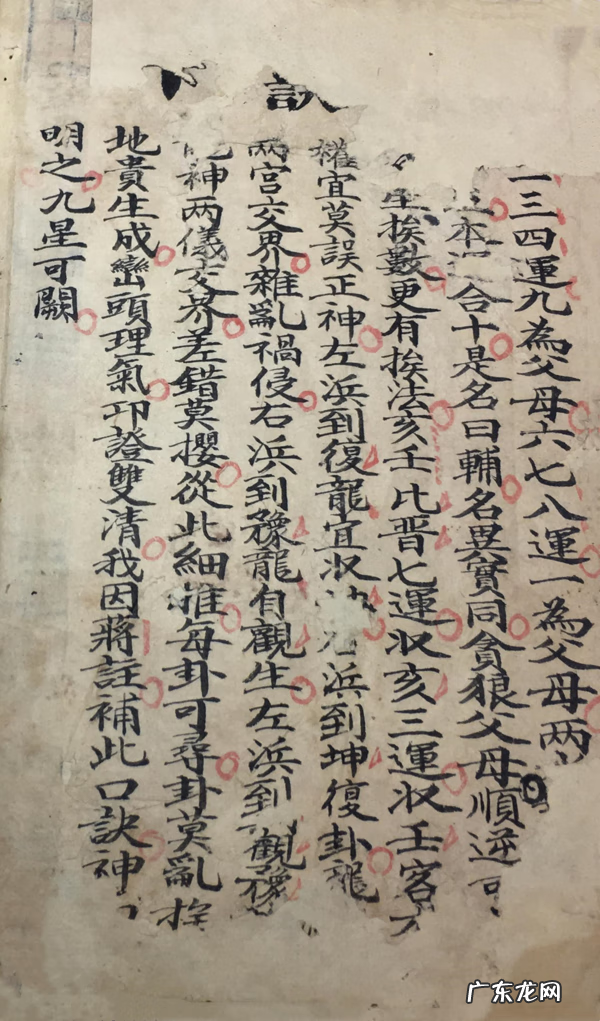 訣
一三四運九為父母六七八運一為父母两
本 合十是名曰輔名異實同貪狼父母順逆可
星挨數更有挨法亥壬比晋七運收亥三運收壬客
權宜莫誤正神左浜到復龍宜收 右浜到坤復卦龍
两宫交界雜亂禍侵右浜到豫龍自觀生左浜到 觀豫
神两儀交界差錯莫攖從此細推每卦可尋卦莫亂挨
地貴生成巒頭理氣印證雙清我因蔣註補此口訣神
明之九星可闕
广东龙网